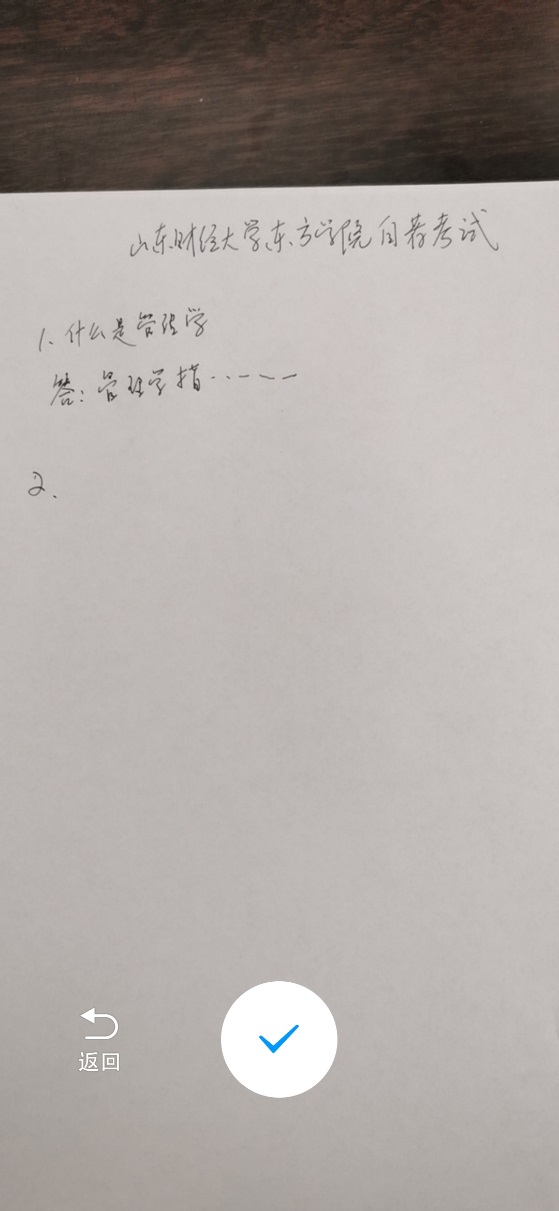 山东财经大学东方学院自荐考试
1. 什么是管理学
答: 管理学指······
2.
返回